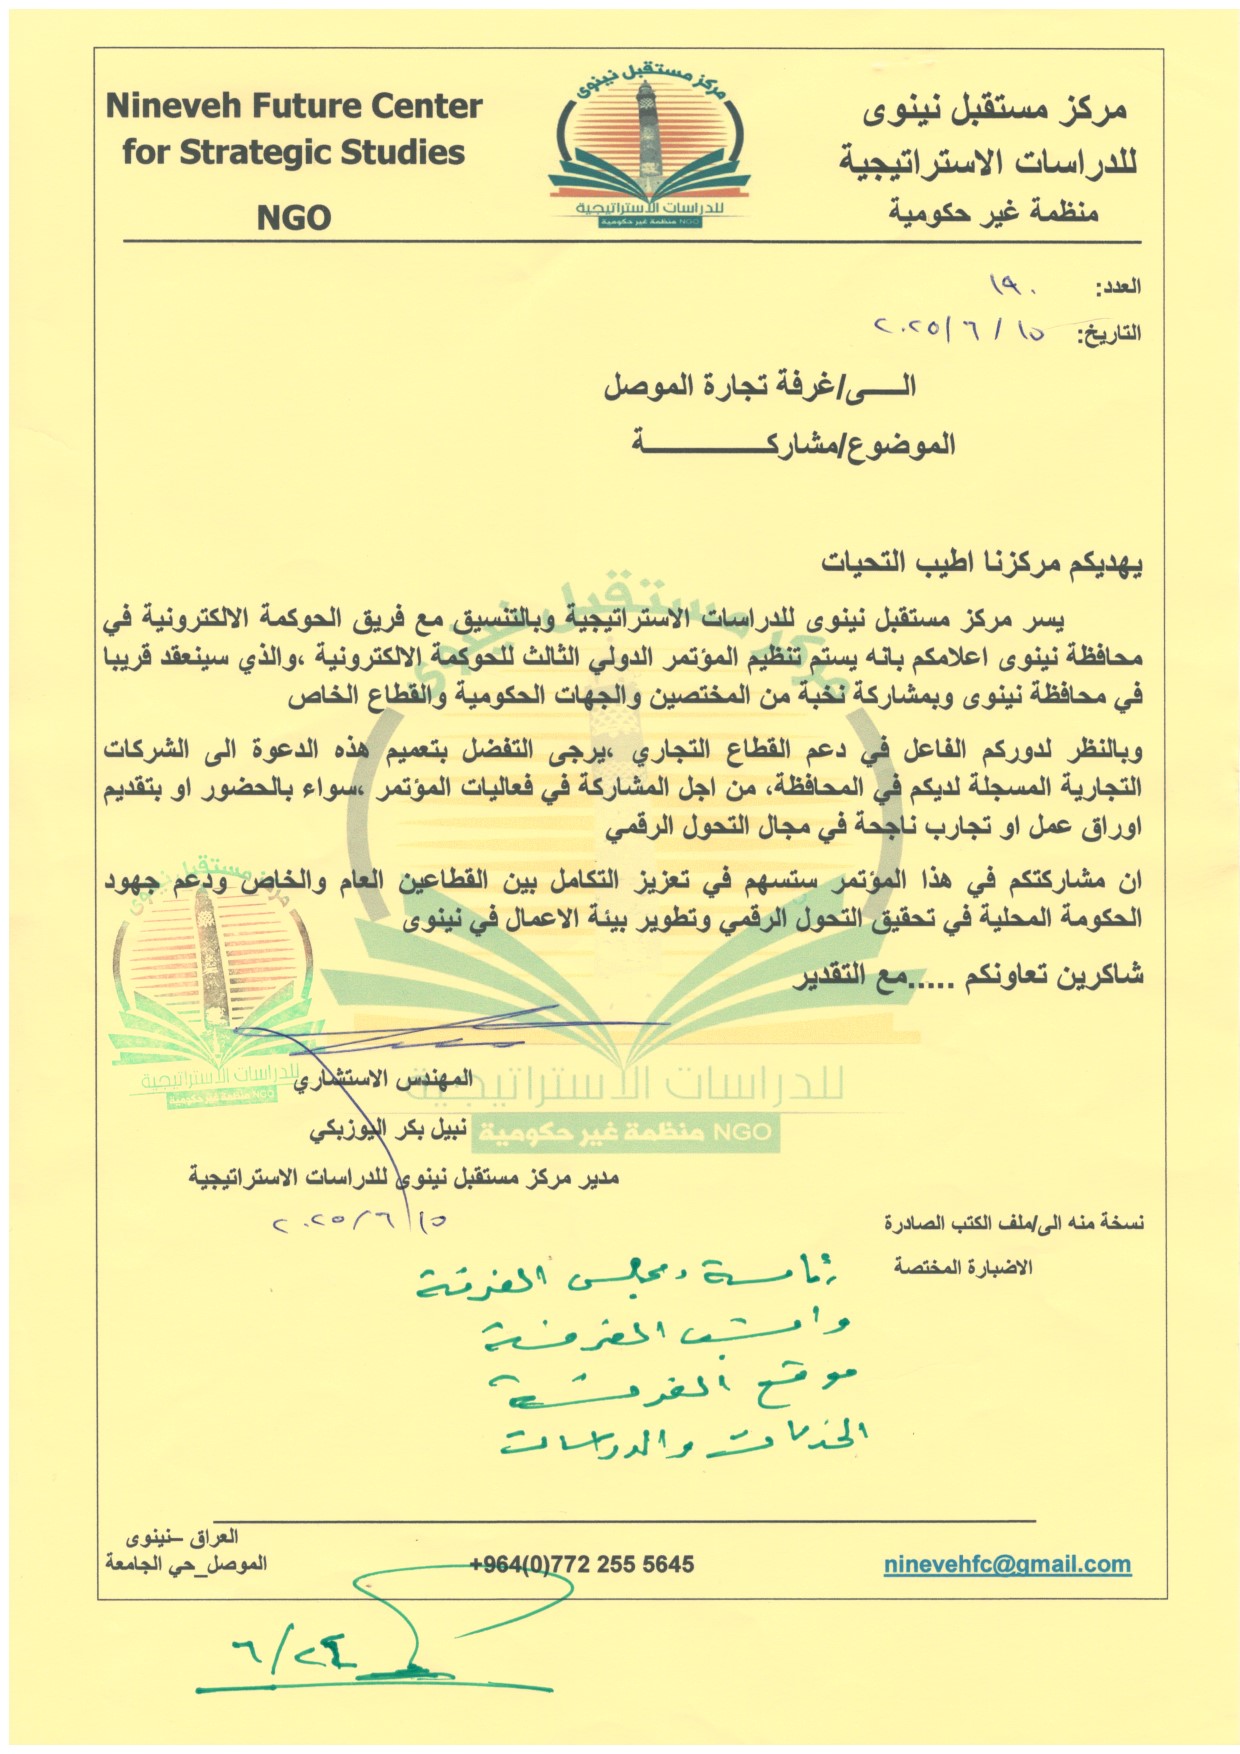 Nineveh Future Center
for Strategic Studies
NGO
مركز مستقبل نينوى
للدراسات الاستراتيجية
NGO منظمة غير حكومية
مركز مستقبل نينوى
للدراسات الاستراتيجية
منظمة غير حكومية
العدد: ١٩٠
التاريخ: ١٥ / ٦ / ٢٠٢٥
الـــــى/غرفة تجارة الموصل
الموضوع/مشاركـــــــــــــة
يهديكم مركزنا اطيب التحيات
يسر مركز مستقبل نينوى للدراسات الاستراتيجية وبالتنسيق مع فريق الحوكمة الالكترونية في
محافظة نينوى اعلامكم بانه يستم تنظيم المؤتمر الدولي الثالث للحوكمة الالكترونية ،والذي سينعقد قريبا
في محافظة نينوى وبمشاركة نخبة من المختصين والجهات الحكومية والقطاع الخاص
وبالنظر لدوركم الفاعل في دعم القطاع التجاري ،يرجى التفضل بتعميم هذه الدعوة الى الشركات
التجارية المسجلة لديكم في المحافظة، من اجل المشاركة في فعاليات المؤتمر ،سواء بالحضور او بتقديم
اوراق عمل او تجارب ناجحة في مجال التحول الرقمي
ان مشاركتكم في هذا المؤتمر ستسهم في تعزيز التكامل بين القطاعين العام والخاص ودعم جهود
الحكومة المحلية في تحقيق التحول الرقمي وتطوير بيئة الاعمال في نينوى
شاكرين تعاونكم .....مع التقدير
مركز مستقبل نينوى
للدراسات الاستراتيجية
NGO منظمة غير حكومية
مركز مستقبل نينوى
للدراسات الاستراتيجية
NGO منظمة غير حكومية
المهندس الاستشاري
نبيل بكر اليوزبكي
مدير مركز مستقبل نينوى للدراسات الاستراتيجية
٢٠٢٥/٦/١٥
نسخة منه الى/ملف الكتب الصادرة
الاضبارة المختصة
رئاسة ومجلس الغرفة
الغرفة
موقع الغرفة
الخدمات والدراسات
العراق –نينوى
الموصل_حي الجامعة
+964(0)772 255 5645
ninevehfc@gmail.com
٦/٢٤